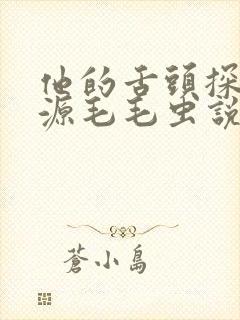 他的舌頭探
源毛毛虫說
蒼小島